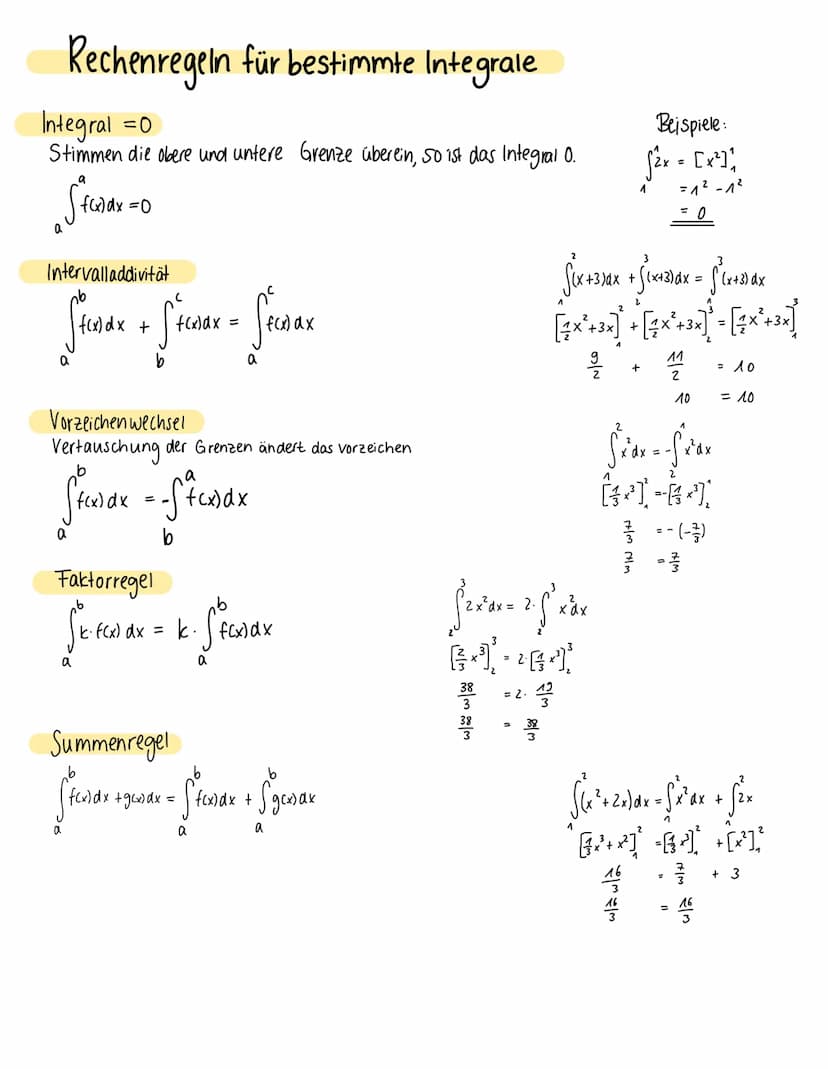 Rechenregeln für bestimmte Integrale
Integral = 0
Stimmen die obere und untere Grenze überein, so ist das Integral 0.
∫ₐᵃ f(x) dx = 0
Beispiele:
∫₁¹ 2x = [x²]₁¹
= 1² - 1²
= 0
Intervalladdivität
∫ₐᵇ f(x) dx + ∫_b^c f(x) dx = ∫ₐᶜ f(x) dx
∫₁² (x+3) dx + ∫₂³ (x+3) dx = ∫₁³ (x+3) dx
[1/2 x² + 3x]₁² + [1/2 x² + 3x]₂³ = [1/2 x² + 3x]₁³
9/2 + 11/2 = 10
10 = 10
Vorzeichenwechsel
Vertauschung der Grenzen ändert das vorzeichen
∫ₐᵇ f(x) dx = -∫_b^a f(x) dx
∫₁² x² dx = -∫₂¹ x² dx
[1/3 x³]₁² = -[1/3 x³]₂¹
7/3 = -(-7/3)
7/3 = 7/3
Faktorregel
∫ₐᵇ k · f(x) dx = k · ∫ₐᵇ f(x) dx
∫₂³ 2x² dx = 2 · ∫₂³ x² dx
[2/3 x³]₂³ = 2 · [1/3 x³]₂³
38/3 = 2 · 19/3
38/3 = 38/3
Summenregel
∫ₐᵇ f(x) dx + g(x) dx = ∫ₐᵇ f(x) dx + ∫ₐᵇ g(x) dx
∫₁² (x² + 2x) dx = ∫₁² x² dx + ∫₁² 2x
[1/3 x³ + x²]₁² = [1/3 x³]₁² + [x²]₁²
16/3 = 7/3 + 3
16/3 = 16/3